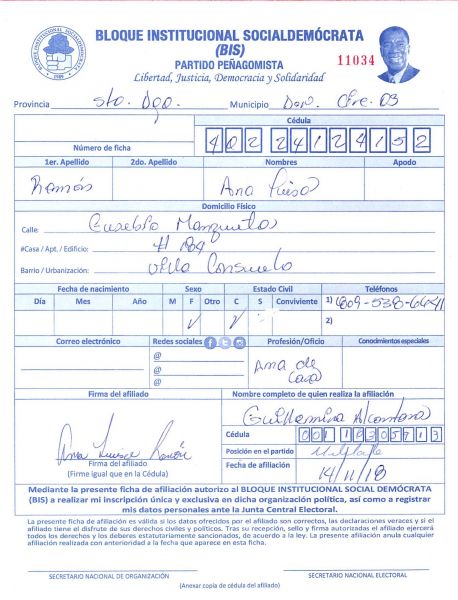 BLOQUE INSTITUCIONAL SOCIALDEMÓCRATA
(BIS)
PARTIDO PEÑAGOMISTA
11034
Libertad, Justicia, Democracia y Solidaridad
Provincia Sto. Dgo. Municipio
Cédula
Número de ficha
1er. Apellido 2do. Apellido Nombres Apodo
Ramón Ana Luisa
Domicilio Físico
Calle:
#Casa / Apt. / Edificio:
Barrio / Urbanización: Villa Consuelo
Fecha de nacimiento Sexo Estado Civil Teléfonos
Día Mes Año M F Otro C S Conviviente 1)
2)
Correo electrónico Redes sociales Profesión/Oficio Conocimientos especiales
@
@
@
Ama de
Casa
Firma del afiliado Nombre completo de quien realiza la afiliación
Guillermina Alcantara
Cédula 001 10305713
Posición en el partido
Fecha de afiliación 14/11/18
Ana Luisa Ramón
Firma del afiliado
(Firme igual que en la Cédula)
Mediante la presente ficha de afiliación autorizo al BLOQUE INSTITUCIONAL SOCIAL DEMÓCRATA
(BIS) a realizar mi inscripción única y exclusiva en dicha organización política, así como a registrar
mis datos personales ante la Junta Central Electoral.
La presente ficha de afiliación es válida si los datos ofrecidos por el afiliado son correctos, las declaraciones veraces y si el
afiliado tiene el disfrute de sus derechos civiles y políticos. Tras su recepción, sello y firma autorizados el afiliado ejercerá
todos los derechos y los deberes estatutariamente sancionados, de acuerdo a la ley. La presente afiliación anula cualquier
afiliación realizada con anterioridad a la fecha que aparece en esta ficha.
SECRETARIO NACIONAL DE ORGANIZACIÓN SECRETARIO NACIONAL ELECTORAL
(Anexar copia de cédula del afiliado)